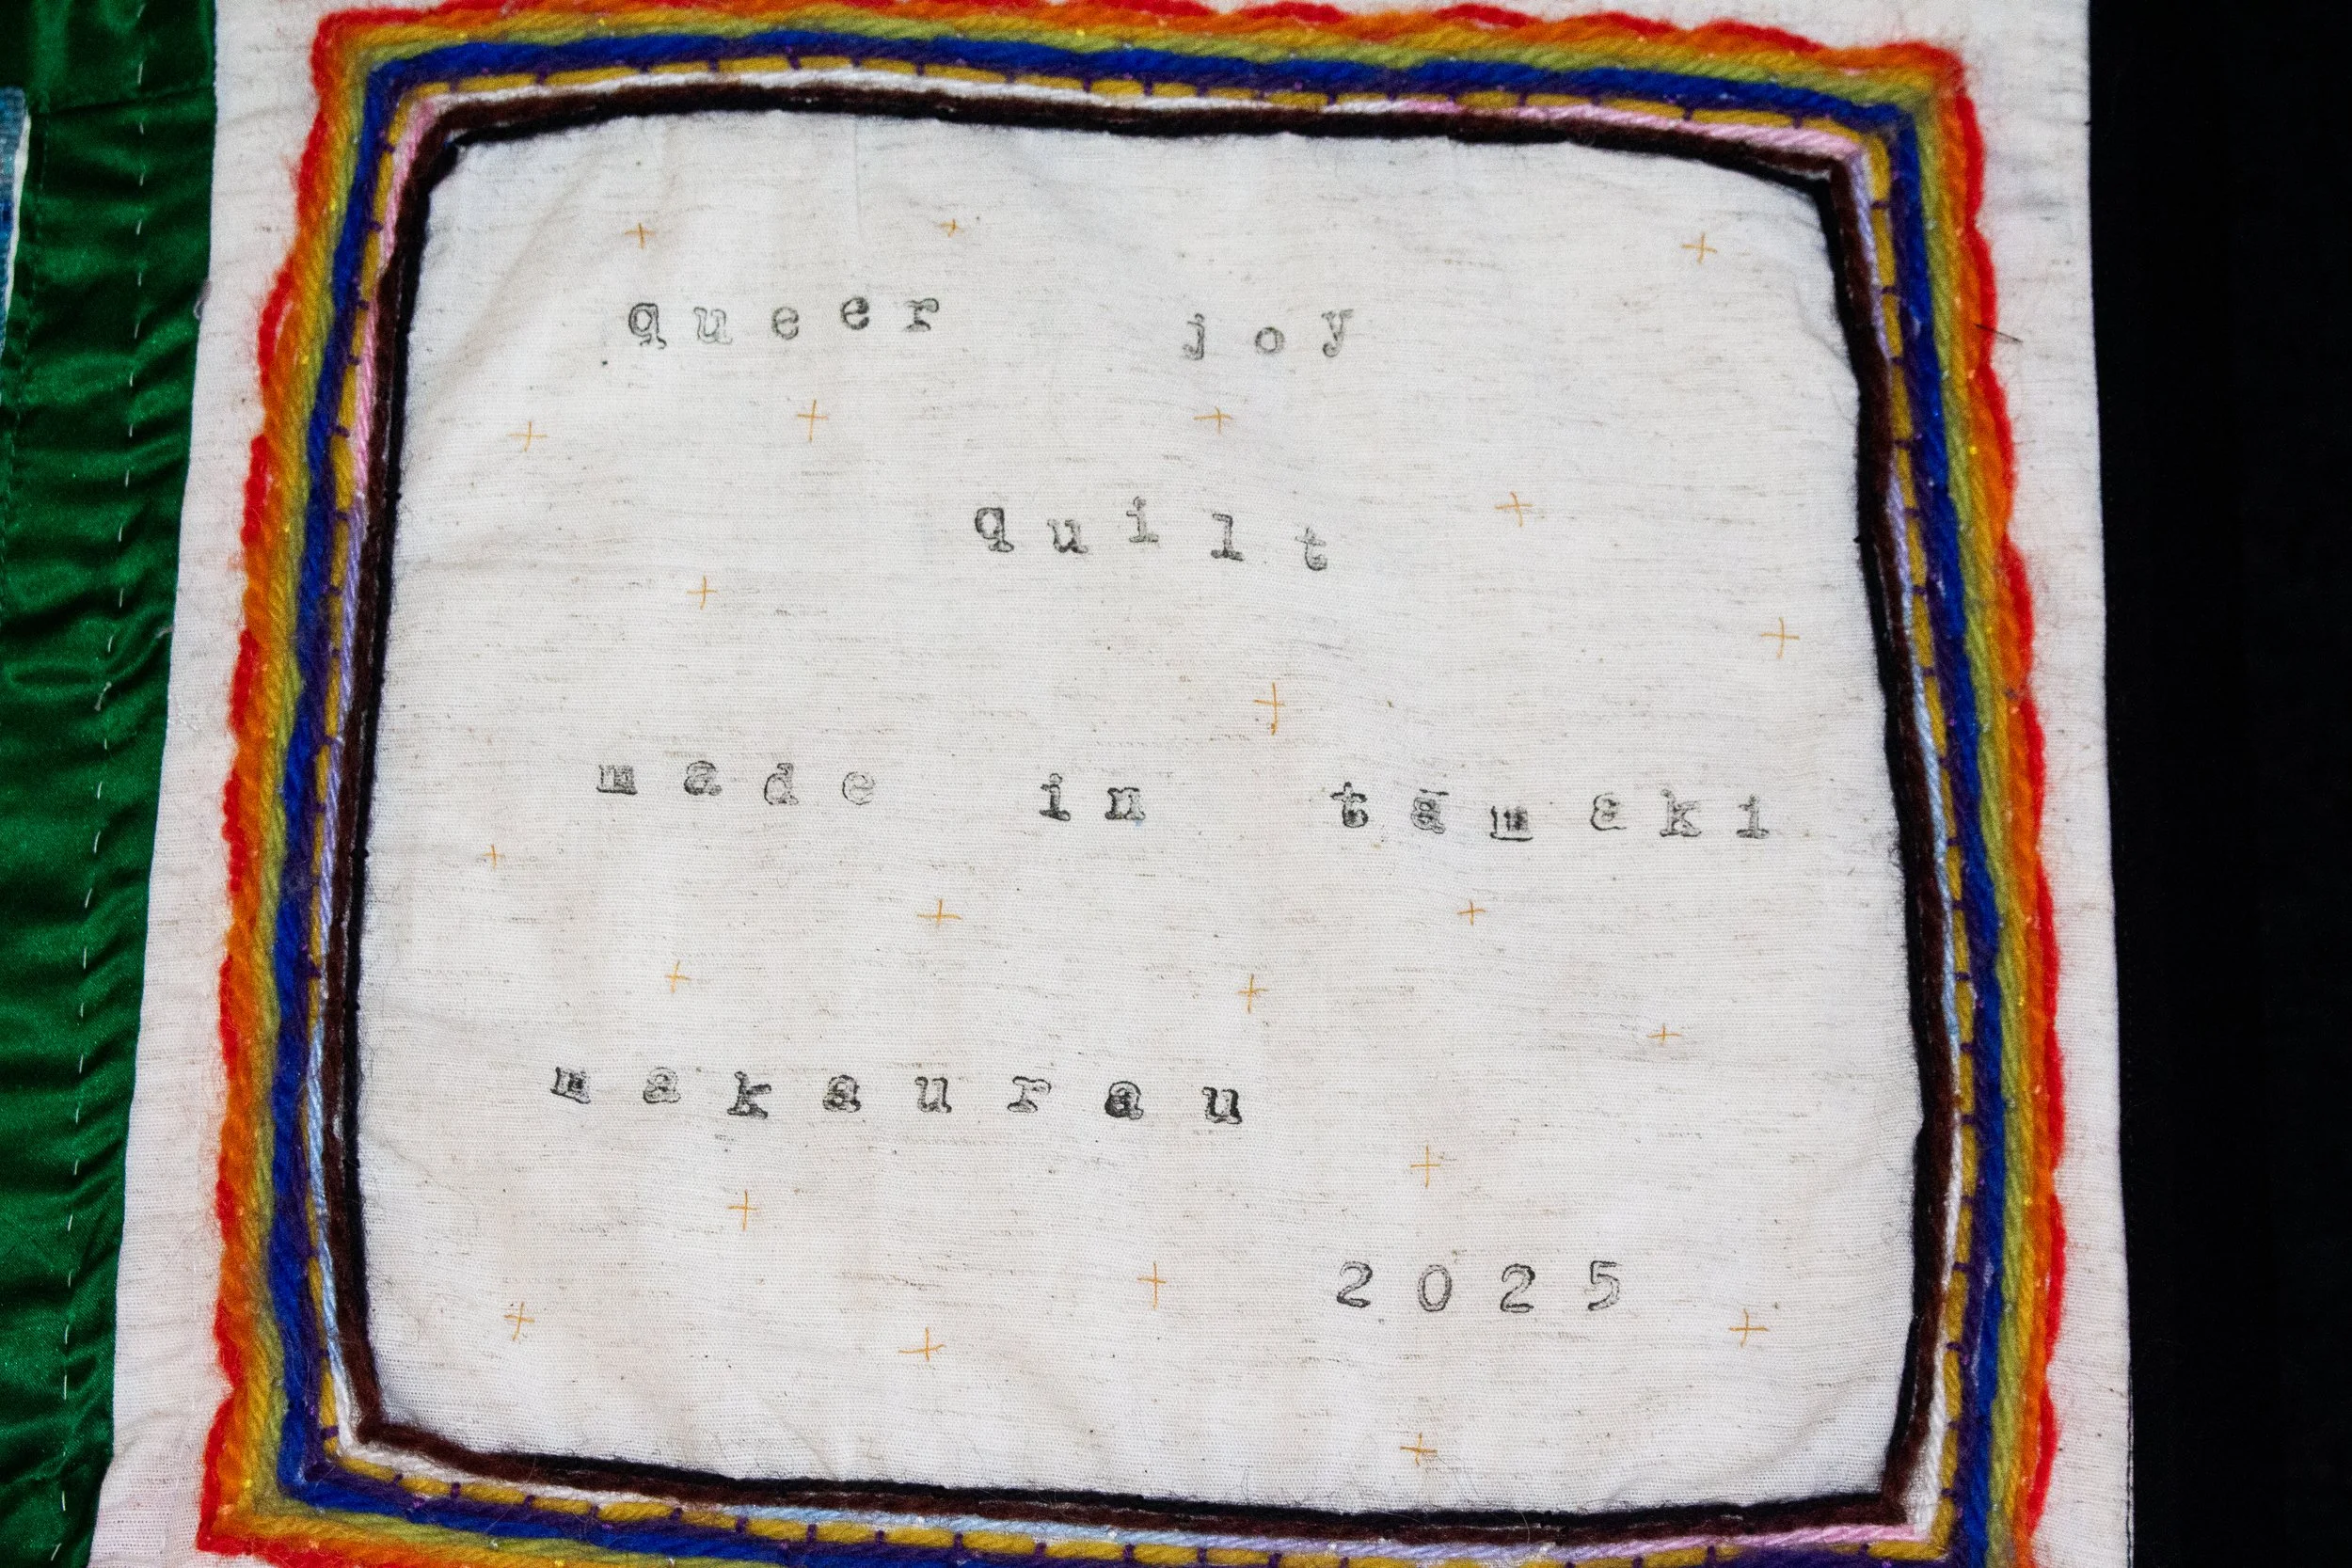 queer joy
quilt
made in tāmaki
makaurau
2025